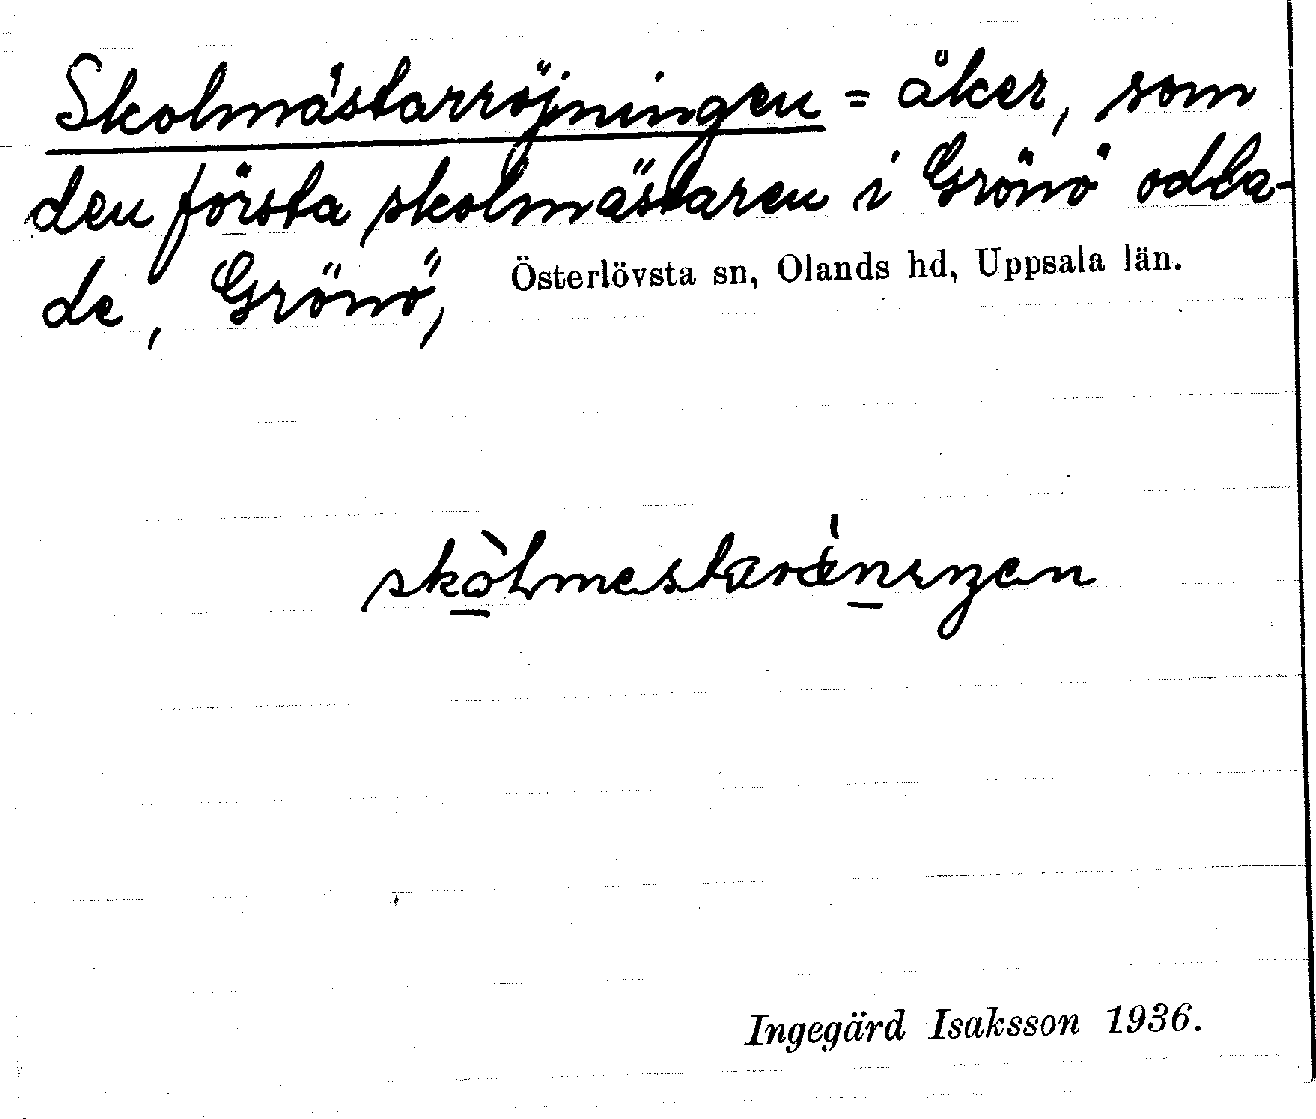 Skolmästarröjningen = åker, som
den första skolmästaren i Grönö odla-
de, Grönö, Österlövsta sn, Olands hd, Uppsala län.
Ingegärd Isaksson 1936.